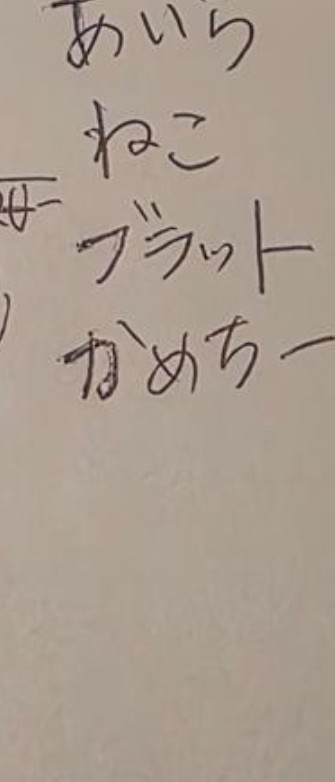 あいら
ねこ
ブラット
かめちー